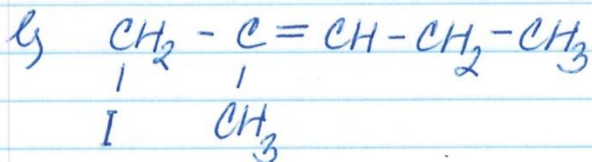 CH₂ - C = CH - CH₂ - CH₃
I CH₃